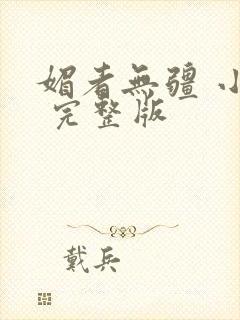 媚者無疆 小
完整版
戴兵